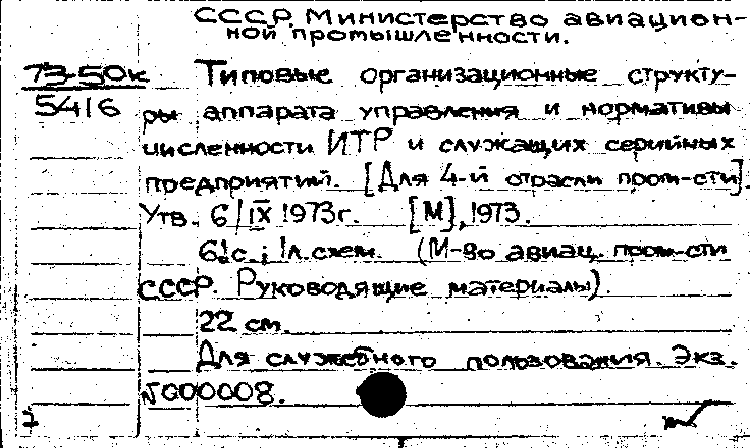 СССР. Министерство авиацион-
ной промышленности.
73-50к Типовые организационные структу-
5416 ры аппарата управления и нормативы
численности ИТР и служащих серийных
предприятий. [Для 4-й отрасли пром-сти].
Утв. 6/IX 1973г. [М], 1973.
6 с.; 1л.схем. (М-во авиац. пром-сти
СССР. Руководящие материалы).
22 см.
Для служебного пользования. Экз.
N000008.